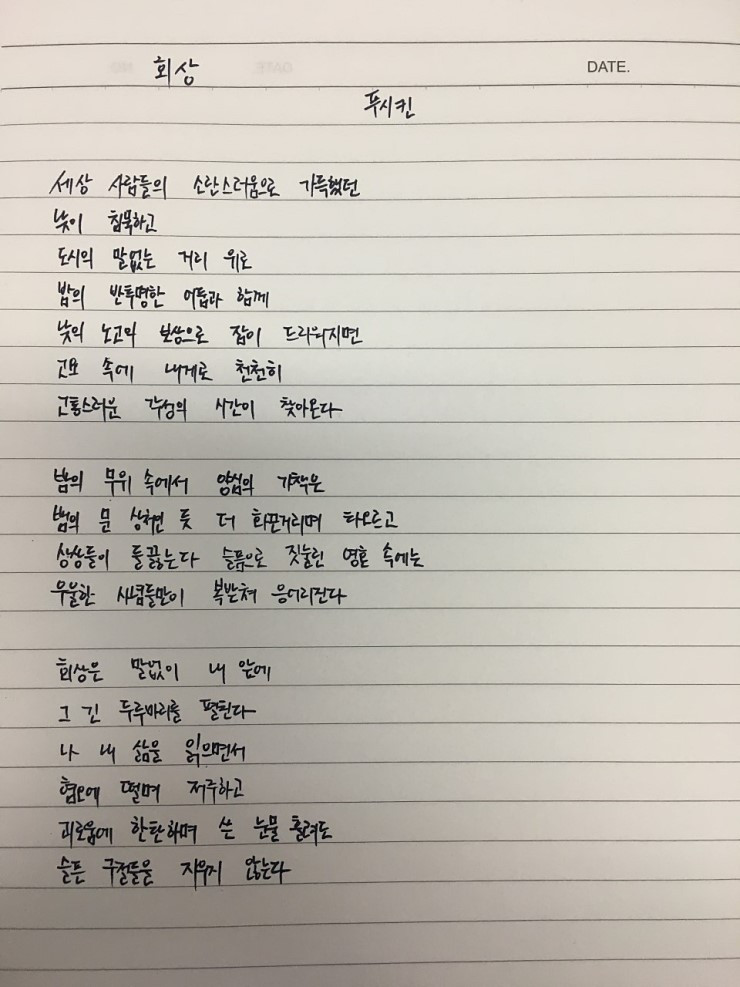 DATE.
회상
푸시킨
세상 사람들의 소란스러움으로 가득했던
낮이 침묵하고
도시의 말없는 거리 위로
밤의 반투명한 어둠과 함께
낮의 노고의 보상으로 잠이 드리워지면
고요 속에 내게로 천천히
고통스러운 각성의 시간이 찾아온다
밤의 무위 속에서 양심의 가책은
뱀의 문 상처인 듯 더 화끈거리며 타오르고
상상들이 들끓는다 슬픔으로 짓눌린 영혼 속에는
우울한 사념들만이 복받쳐 응어리진다
회상은 말없이 내 앞에
그 긴 두루마리를 펼친다
나 내 삶을 읽으면서
혐오에 떨며 저주하고
괴로움에 한탄하며 쓴 눈물 흘려도
슬픈 구절들을 지우지 않는다